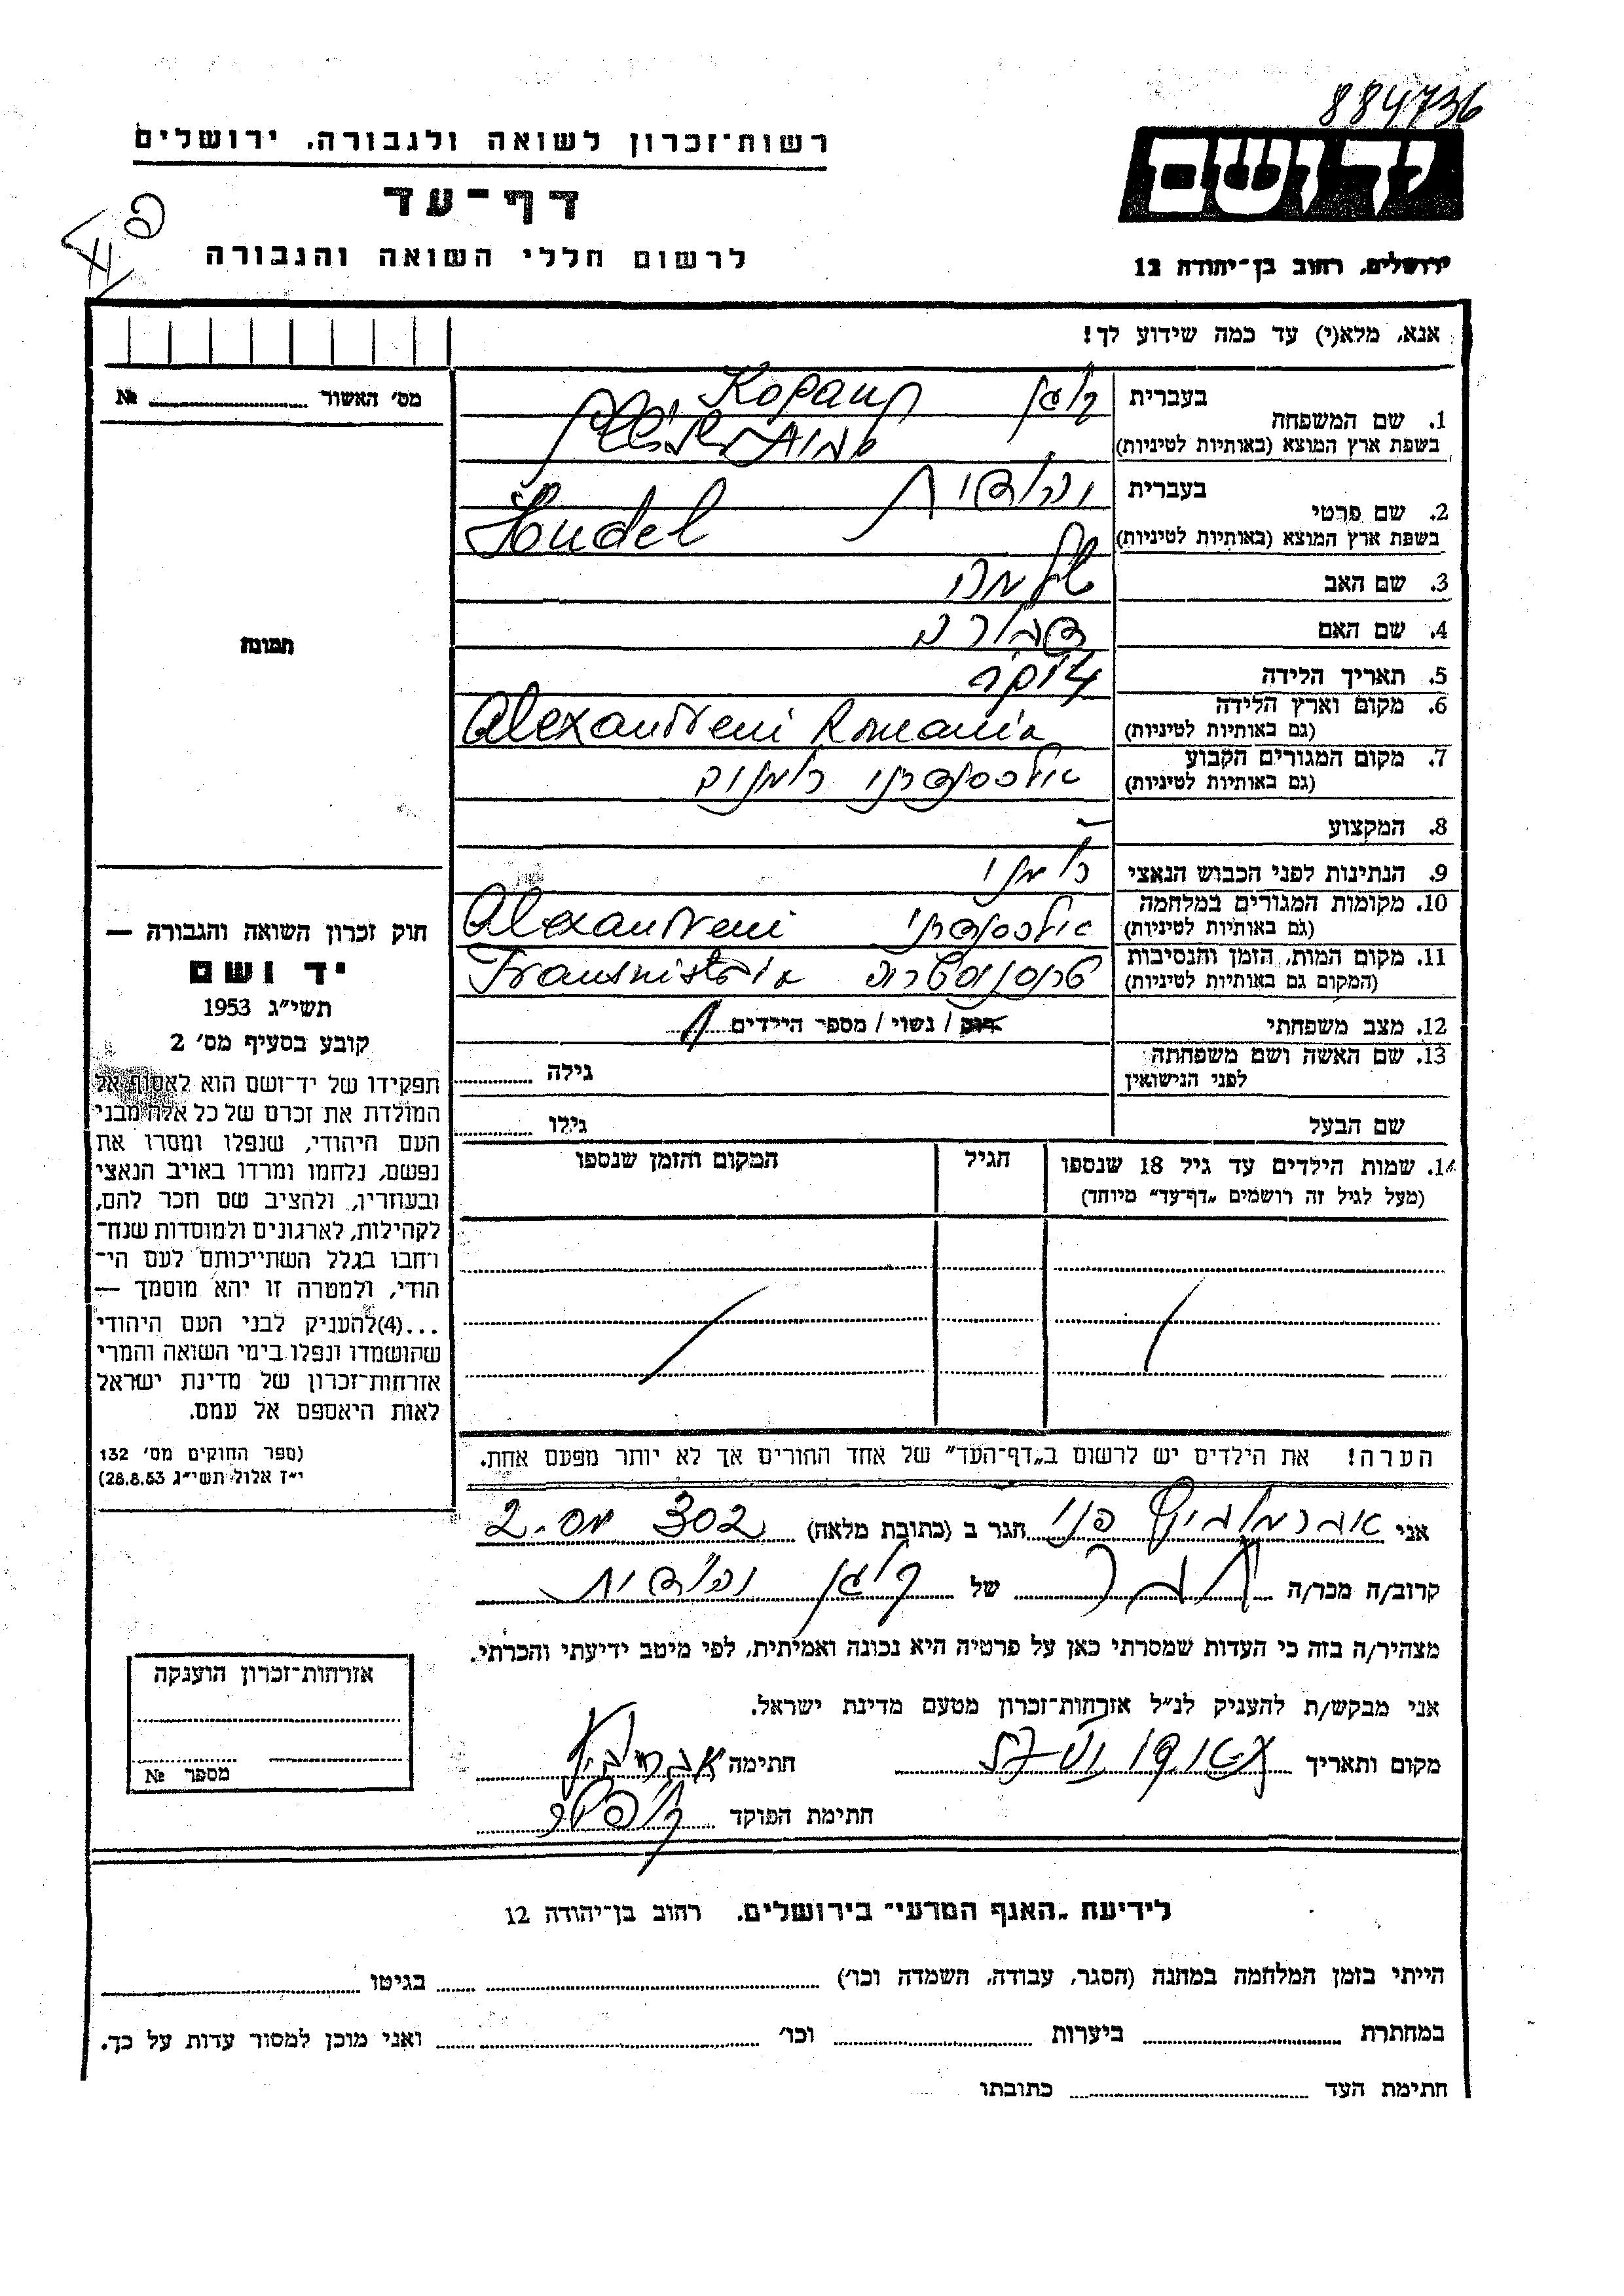 884736
רשות־זכרון לשואה ולגבורה. ירושלים
יד ושם
דף־עד
לרשום חללי השואה והגבורה
ירושלים, רחוב בן־יהודה 12
אנא, מלא(י) עד כמה שידוע לך!
מס׳ האשור № 
תמונה
1. שם המשפחה
בעברית
בשפת ארץ המוצא (באותיות לטיניות)
2. שם פרטי
בעברית יהודית
בשפת ארץ המוצא (באותיות לטיניות) Hudel
3. שם האב שלמה
4. שם האם דבורה
5. תאריך הלידה
6. מקום וארץ הלידה
(גם באותיות לטיניות) Alexandreni Romania
7. מקום המגורים הקבוע
(גם באותיות לטיניות) אלכסנדרני רומניה
8. המקצוע -
9. הנתינות לפני הכבוש הנאצי רומני
10. מקומות המגורים במלחמה
(גם באותיות לטיניות) אלכסנדרני Alexandreni
11. מקום המות, הזמן והנסיבות
(המקום גם באותיות לטיניות) טרנסניסטריה Transnistria
12. מצב משפחתי רוק / נשוי / מספר הילדים
13. שם האשה ושם משפחתה
לפני הנישואין גילה
שם הבעל גילו
14. שמות הילדים עד גיל 18 שנספו
(מעל לגיל זה רושמים „דף־עד״ מיוחד)
הגיל
המקום והזמן שנספו
הערה! את הילדים יש לרשום ב„דף־העד״ של אחד ההורים אך לא יותר מפעם אחת.
חוק זכרון השואה והגבורה —
יד ושם
תשי״ג 1953
קובע בסעיף מס׳ 2
תפקידו של יד־ושם הוא לאסוף אל
המולדת את זכרם של כל אלה מבני
העם היהודי, שנפלו ומסרו את
נפשם, נלחמו ומרדו באויב הנאצי
ובעוזריו, ולהציב שם וזכר להם,
לקהילות, לארגונים ולמוסדות שנח־
רחבו בגלל השתייכותם לעם הי־
הודי, ולמטרה זו יהא מוסמך —
...(4)להעניק לבני העם היהודי
שהושמדו ונפלו בימי השואה והמרי
אזרחות־זכרון של מדינת ישראל
לאות היאספם אל עמם.
(ספר החוקים מס׳ 132
י״ז אלול תשי״ג 28.8.53)
אני אברמוביץ פני הגר ב (כתובת מלאה) 302 מס. 2
קרוב/ה מכר/ה של קוגן יהודית
מצהיר/ה בזה כי העדות שמסרתי כאן על פרטיה היא נכונה ואמיתית, לפי מיטב ידיעתי והכרתי.
אני מבקש/ת להעניק לנ״ל אזרחות־זכרון מטעם מדינת ישראל.
מקום ותאריך
חתימה
חתימת הפוקד
אזרחות־זכרון הוענקה
מספר №
לידיעת „האגף המדעי״ בירושלים. רחוב בן־יהודה 12
הייתי בזמן המלחמה במחנה (הסגר, עבודה, השמדה וכו׳) בגיטו
במחתרת ביערות וכו׳ ואני מוכן למסור עדות על כך.
חתימת העד כתובתו